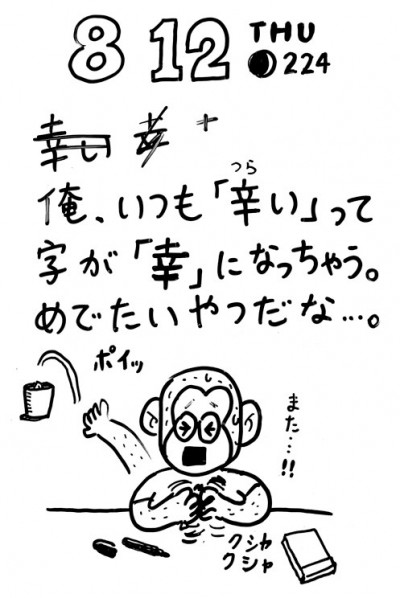 8 12 THU
224
幸い 幸 十
俺、いつも「辛い」って
つら
字が「幸」になっちゃう。
めでたいやつだな…。
ポイッ
また…!!
クシャ
クシャ